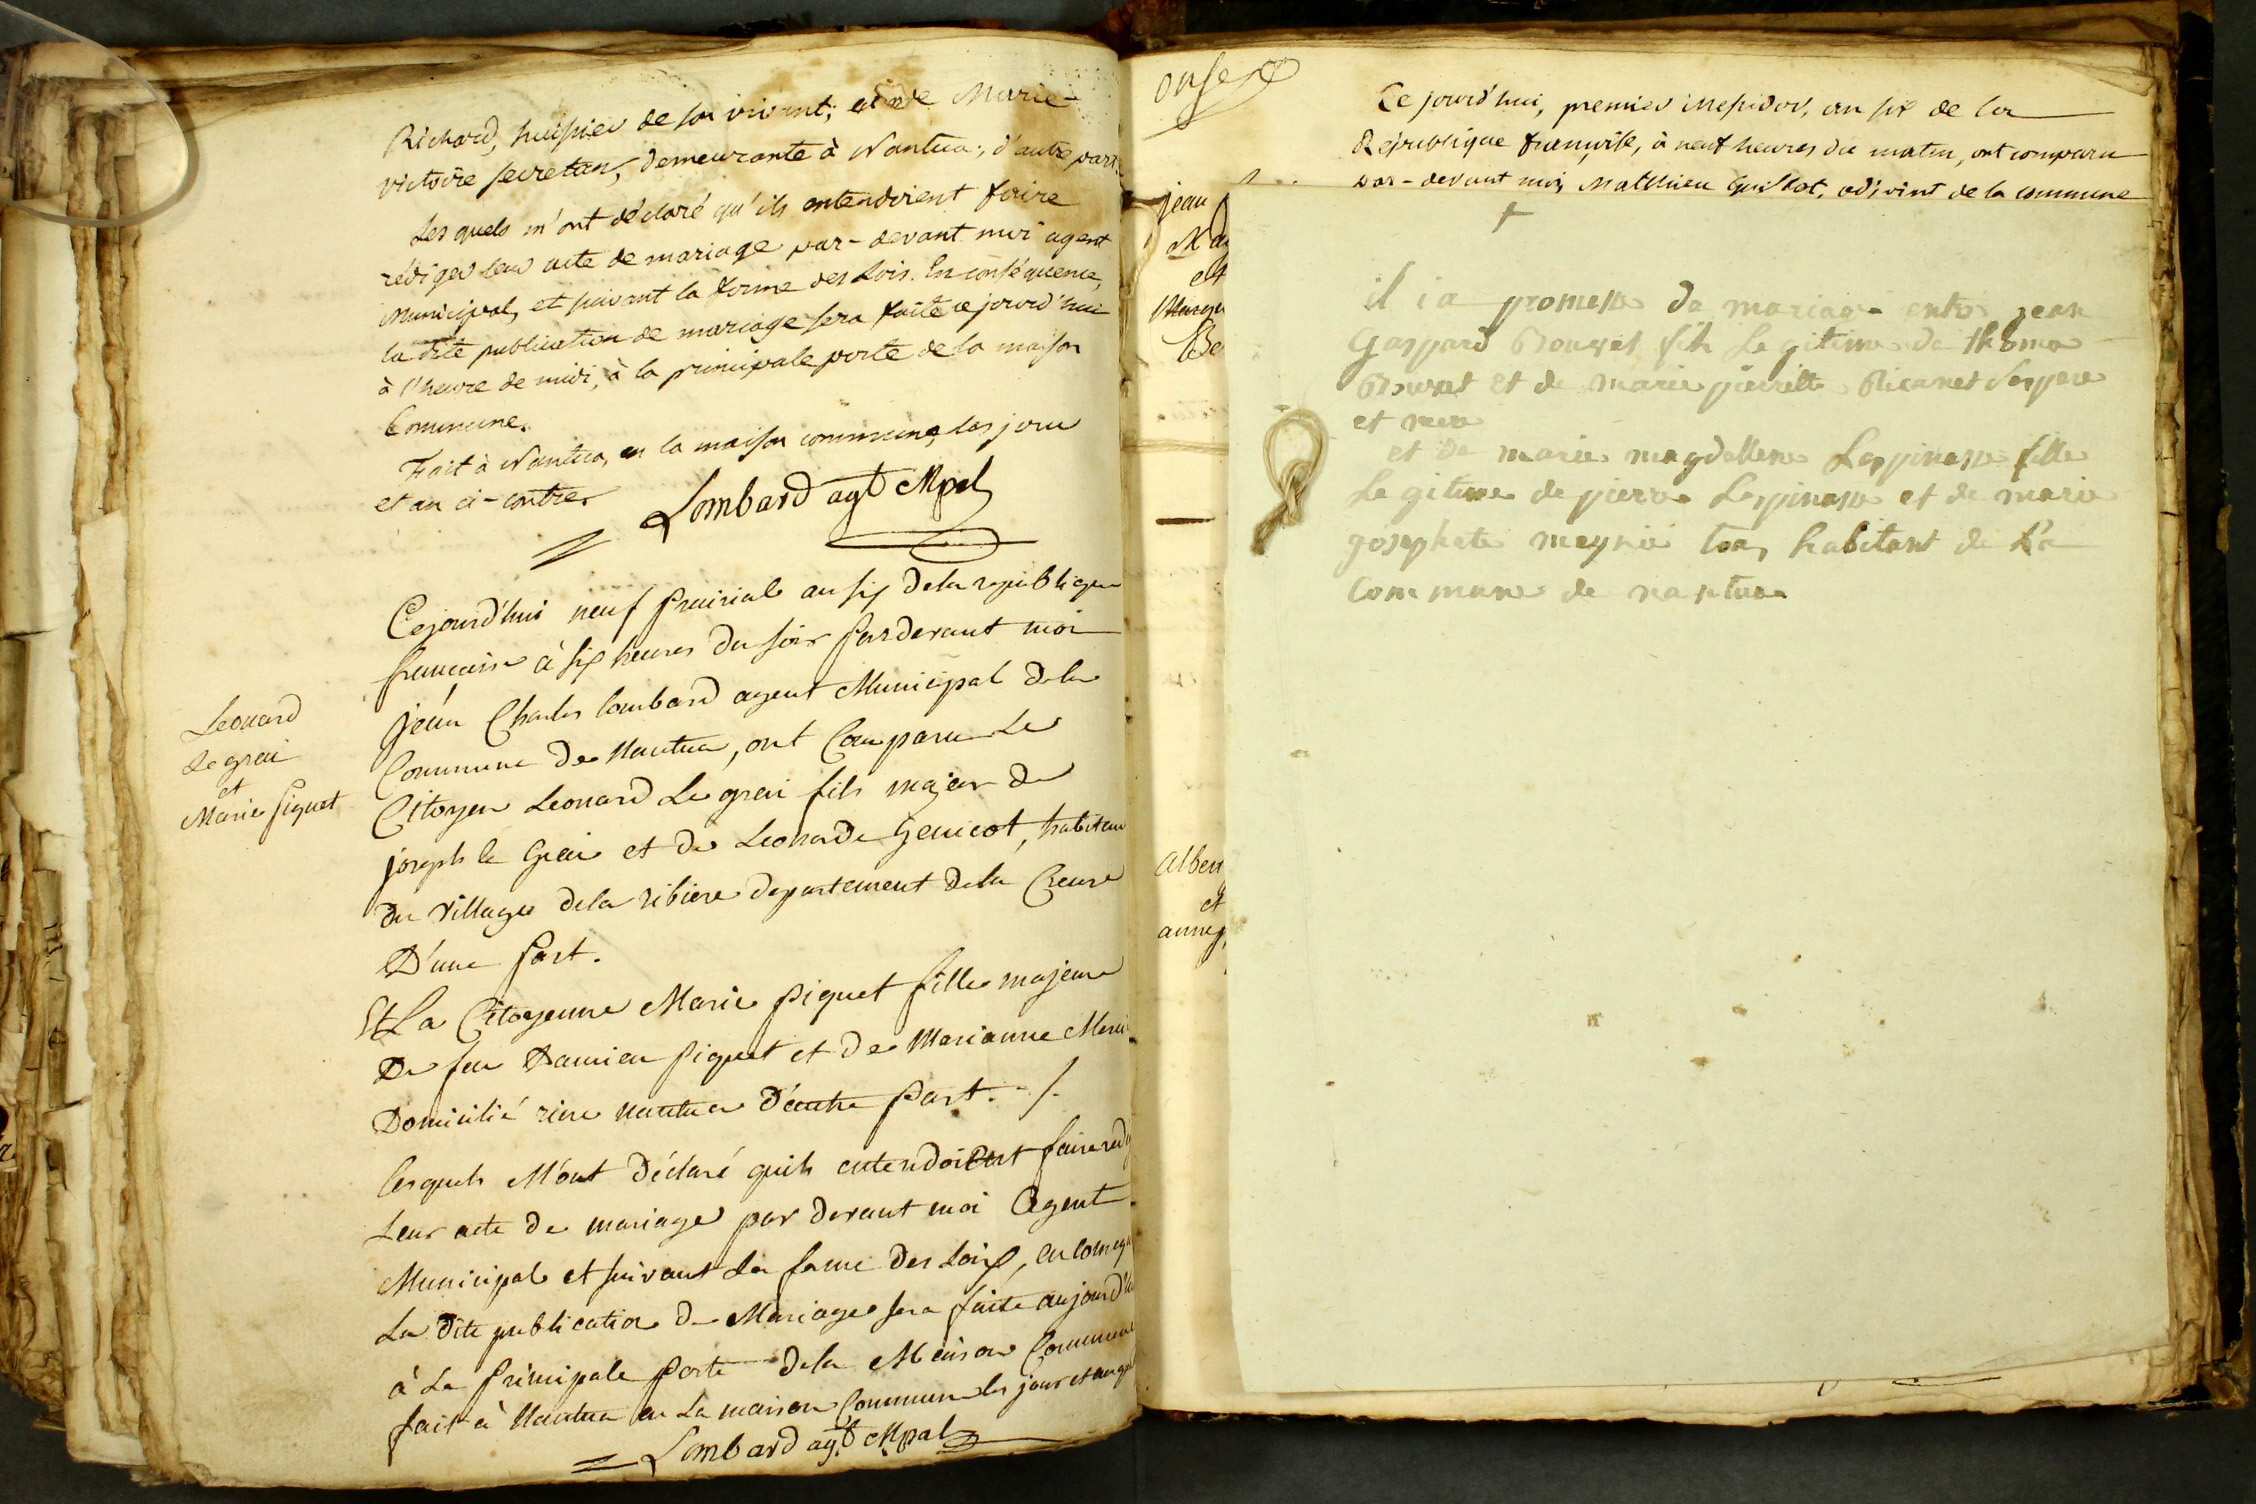 Richard, huissier de son vivant; et de Marie
victoire secretan, demeurante à Nantua; d'autre part.
Les quels m'ont déclaré qu'ils entendoient faire
rédiger leur acte de mariage par-devant moi agent
Municipal, et suivant la forme des Lois. En conséquence,
la dite publication de mariage sera faite ce jourd'hui
à l'heure de midi, à la principale porte de la maison
Commune.
Fait à Nantua, en la maison commune, les jour
et an ci-contre.
Lombard agt Mpal
Cejourd'hui neuf prairial an six de la republique
francaise à six heures du soir pardevant moi
jean Charles lombard agent Municipal de la
Commune de Nantua, ont Comparu Le
Leonard
Le grai
et
Marie piquet
Citoyen Leonard Le grai fils majeur de
joseph le Grai et de Leonarde Genicot, habitant
du village de la ribiere departement de la Creuse
D'une part.
Et La Citoyenne Marie piquet fille majeure
De feu Damien piquet et de Marianne
Domicilié riere nantua D'autre part. /.
lesquels M'ont Déclaré quils entendoient faire
Leur acte de mariage par devant moi Agent
Municipal et suivant la forme des Loix, en
La dite publication de Mariage sera faite aujourd'
à La principale porte de la Maison Commune
fait à Nantua en La maison Commune les jour et an
Lombard agt Mpal
onse
Ce jourd'hui, premier messidor, an six de la
République française, à neuf heures du matin, ont comparu
par-devant moi, Matthieu Guillot, adjoint de la commune
jean
et
Be
Alber
et
anne
il i a promesse de mariage entre jean
Gaspard Bouvet fils Legitime de thoma
Bouvet et de marie pierrette Ricanet Ses pere
et mere
et de marie magdellene Lespinasse fille
Legitime de pierre Lespinasse et de marie
gosephete meynié tous habitant de La
Commune de nantua